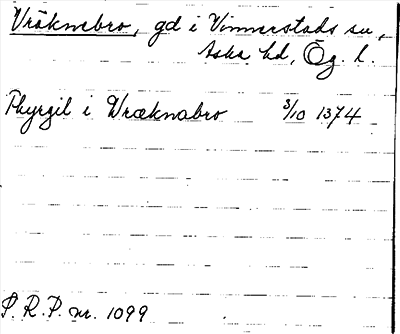 Vråknebro, gd i Vinnerstads sn,
Aska hd, Ög. l.
Thyrgil i Wræknabro 3/10 1374
S. R. P. nr. 1099